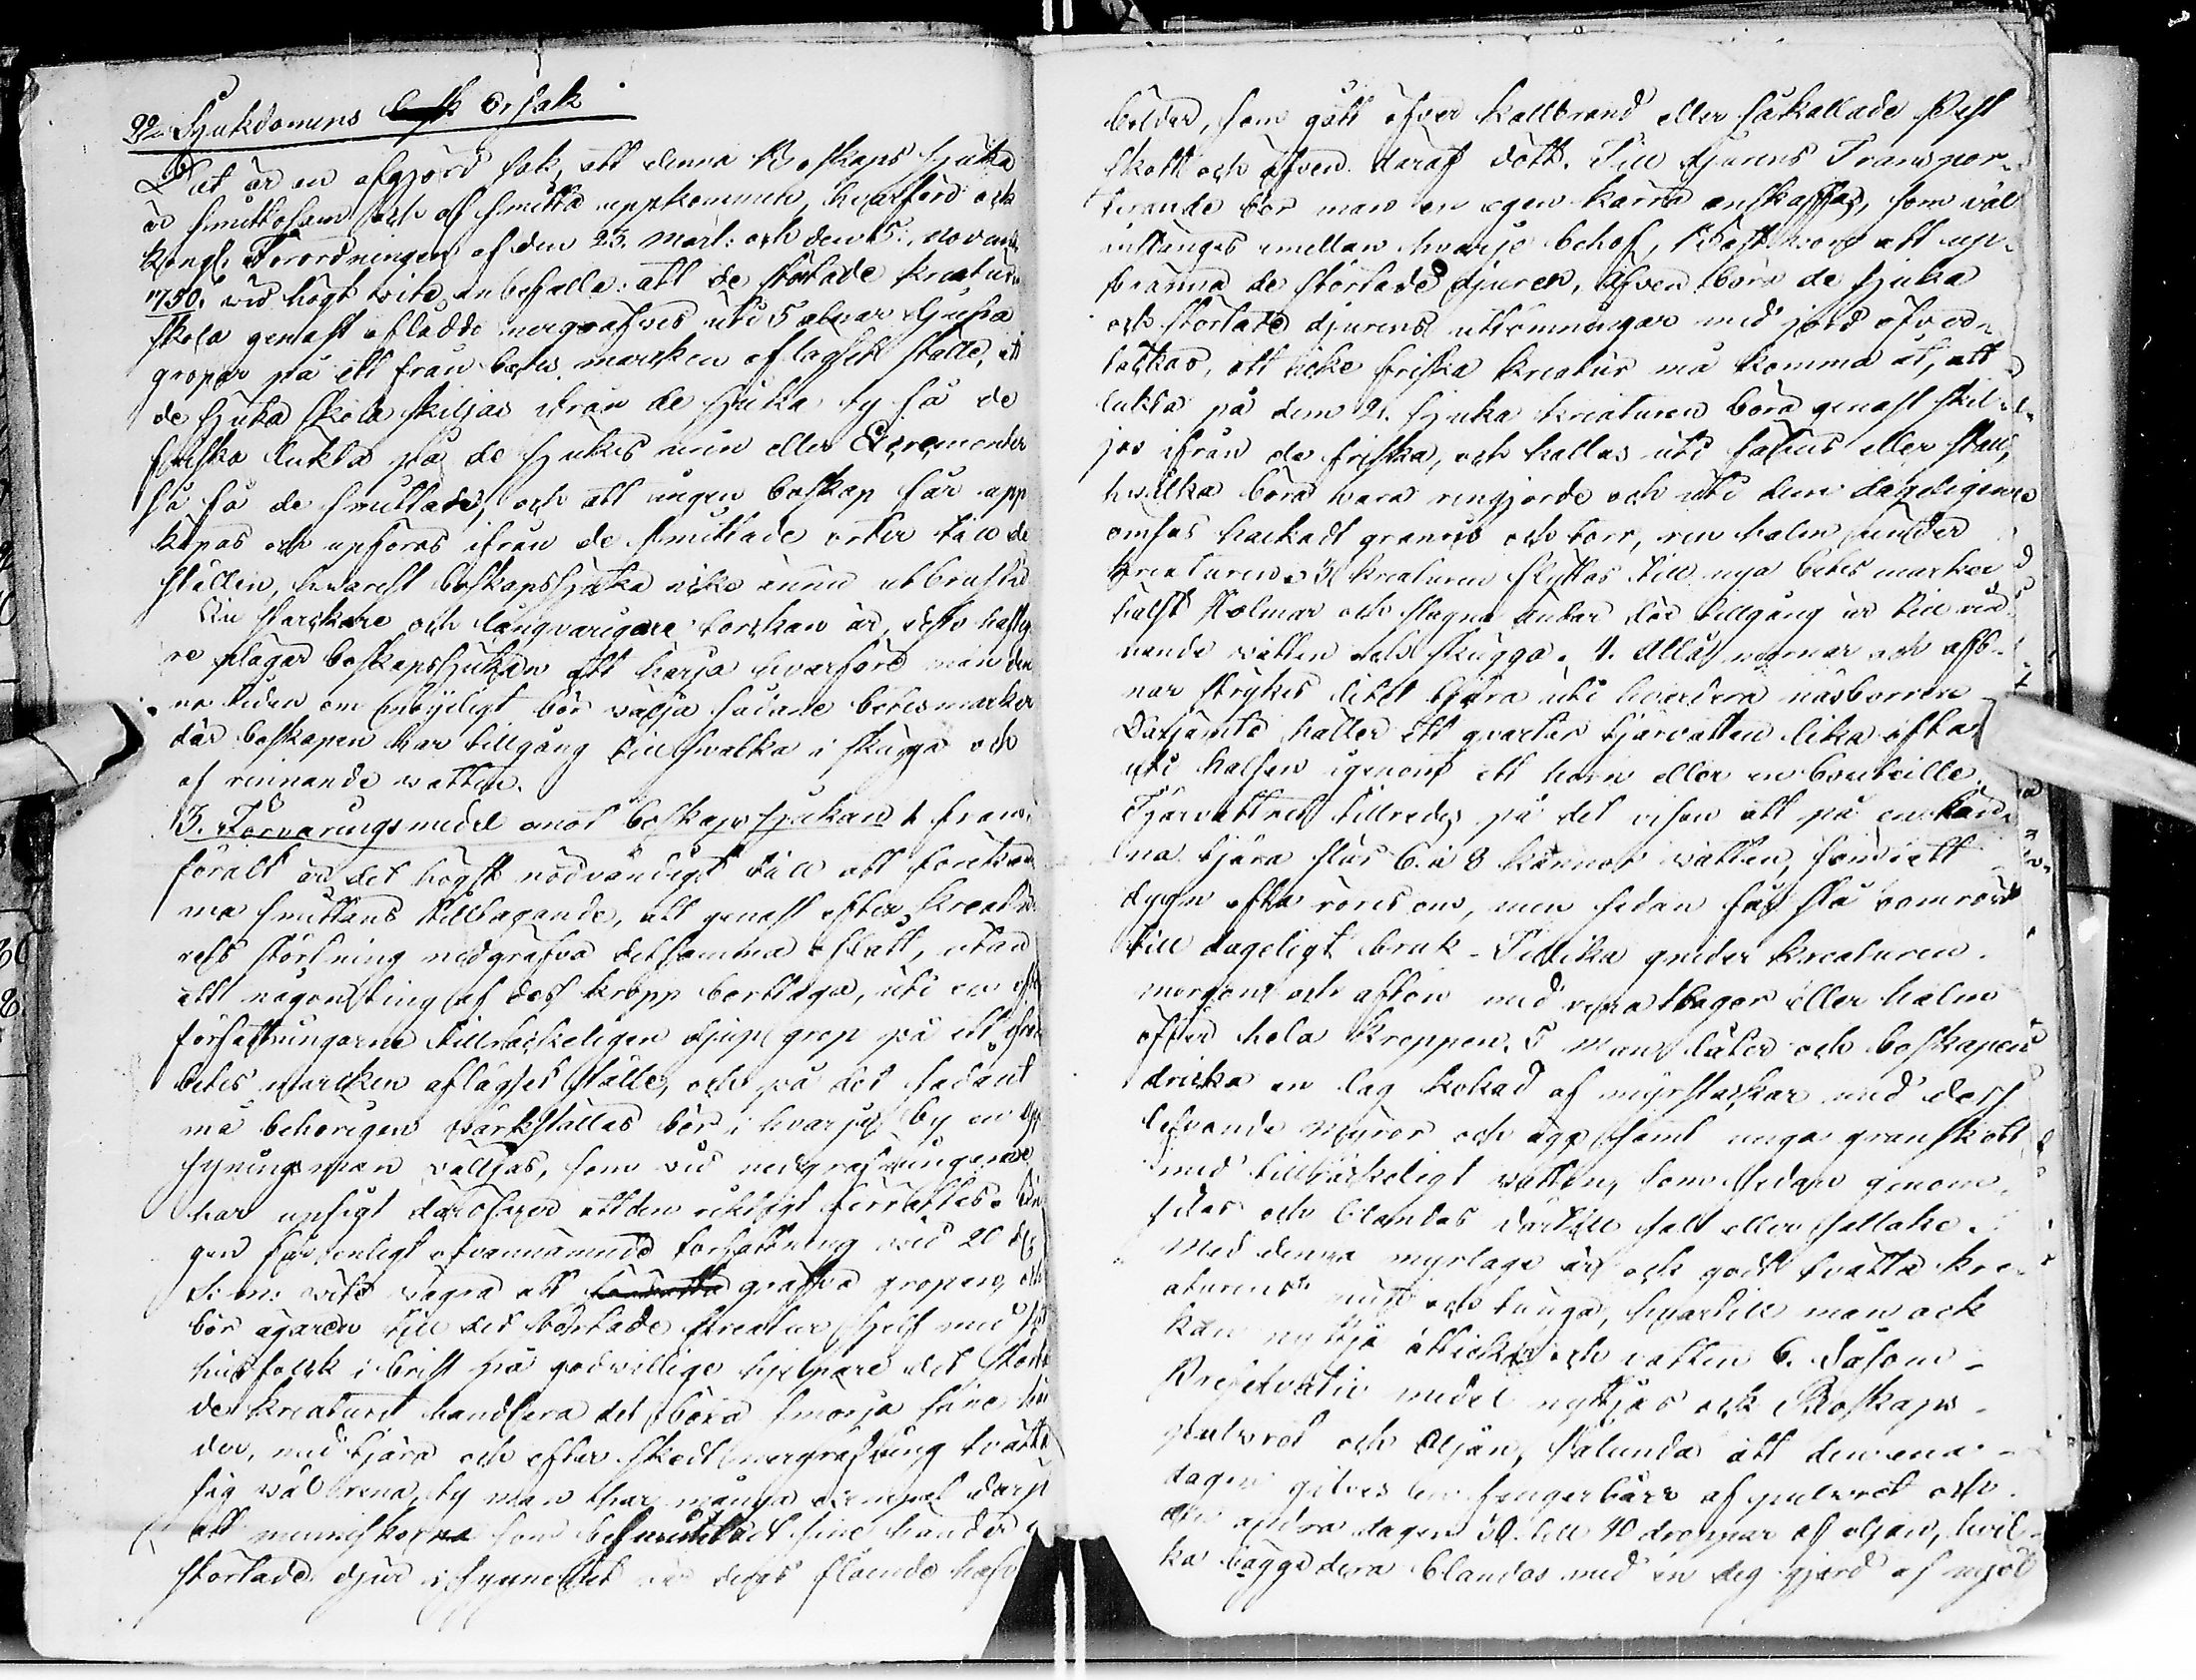 2o Sjukdomens Orsak
Det är en afgjord sak, att denna Boskaps sjuka
är smittosam och af smitta uppkommen, hvarföre ock
Kongl. Förordningen af den 23. Mart: och den 5. novemb
1750. vid högt wite anbefalla: att de störtade kreaturen
skola genast oflådde nergrafvas uti 5 alnar djupa
gropar på ett från betes marcken aflägset ställe, att
de sjuka skola skiljas ifrån de sjuka ty få de
friska lukta på de sjukes urin eller Excrementer
så få de smittan, och att ingen boskap får upp
köpas och upföras ifrån de smittade orter till de
ställen, hvarest boskapssjuka icke ännu utbrustit
Ju starckare och långvarigare torckan är, desto häftiga
re plägar boskapssjukan att härja hvarföre man den
na tiden om möjeligt bör välja sådane betesmarker
där boskapen har tillgång till svalka i skugga och
af rinnande watten.
3. Förvaringsmedel emot boskapssjukan 1 fram
föralt är det högst nödvändigt till att förekom
ma smittans tilltagande, att genast efter kreatu
rets störtning nedgräfva detsamma oflått, utan
att någonting af dess kropp borttaga, uti en efter
författningarne tillräckeligen djup grop på ett ifrån
betes marcken aflägset ställe, och på det sådant
må behörigen värkställas bör i hvarje by en upp
syningsman väljas, som vid nedgrafningarne
har upsigt däröfver att den riktigt förrättes. In
gen får enligt ofvannämnde författning vid 20 d
S:m: wite vägra att gräfva gropen, och
bör ägaren till det störtade kreatur sjelf med sitt
husfolck i brist på godwillige hjelpare det störta
de kreaturet handtera det böra smörja sine hän
der, med tjära och efter skedt nergräfning tvätta
sig wäl rena, ty man har många exempel derpå
att menniskorna som besmittadt sine händer i
störtade djur i synnerhet vid deras flående hafv
bölder, som gått öfver kallbrand eller såkallade Pest
skott och äfven däraf dött. Till djurens Transpor-
terande bör man en egen kärra anskaffas, som väl
instänges emellan hvarje behof, Bäst vore att up-
bränna de störtade djuren, äfven böra de sjuka
och störtade djurens uttömningar med jord öfver
täckas, att icke friska kreatur må komma åt, att
lukta på dem 2. sjuka kreaturen böra genast skil-
jas ifrån de friska, och hållas uti fähus eller stall,
hvilka böra vara rengjorde och uti dem dageligen
omsas hackadt granris och torr, ren halm under
kreaturen. 3 kreaturen flyttas till nya betes marker
hälst Holmar och skogna ändar där tillgång är till rin
nande vatten och skugga. 4. Alla mornar och afto-
nar strykes litet tjära uti hvardera näsborren
Därjämte hälles ett quarter tjärvatten lika ofta
uti halsen igenom ett horn eller en bouteille
Tjärvattnet tillredes på det visan att på en kan
na tjära slås 6 à 8 kannor vatten, som i ett
dygn ofta röres om, men sedan får stå orördt
till dageligt bruk - Tillika gnides kreaturen
morgon och afton med rena tagor eller halm
öfver hela kroppen. 5 Man låter och boskapen
dricka en lag kokad af myrstackar med dess
lefvande myror och ägg samt unga granskott
med tillräckeligt vatten, som sedan genom-
silas och blandas därtill salt eller saltlake.
Med denna myrlage är och godt tvätta kre-
aturens mun och tunga, hvartill man ock
kan nyttja ättickja och vatten 6. Såsom
Preservativ medel nyttjas ock Boskaps
pulvret och Oljan, sålunda att den ena
dagen gifves en fingerbärr af pulvret och
den andra dagen 30. till 40 droppar af oljan, hvil-
ka bägge dera blandas med en deg gjord af mjöl